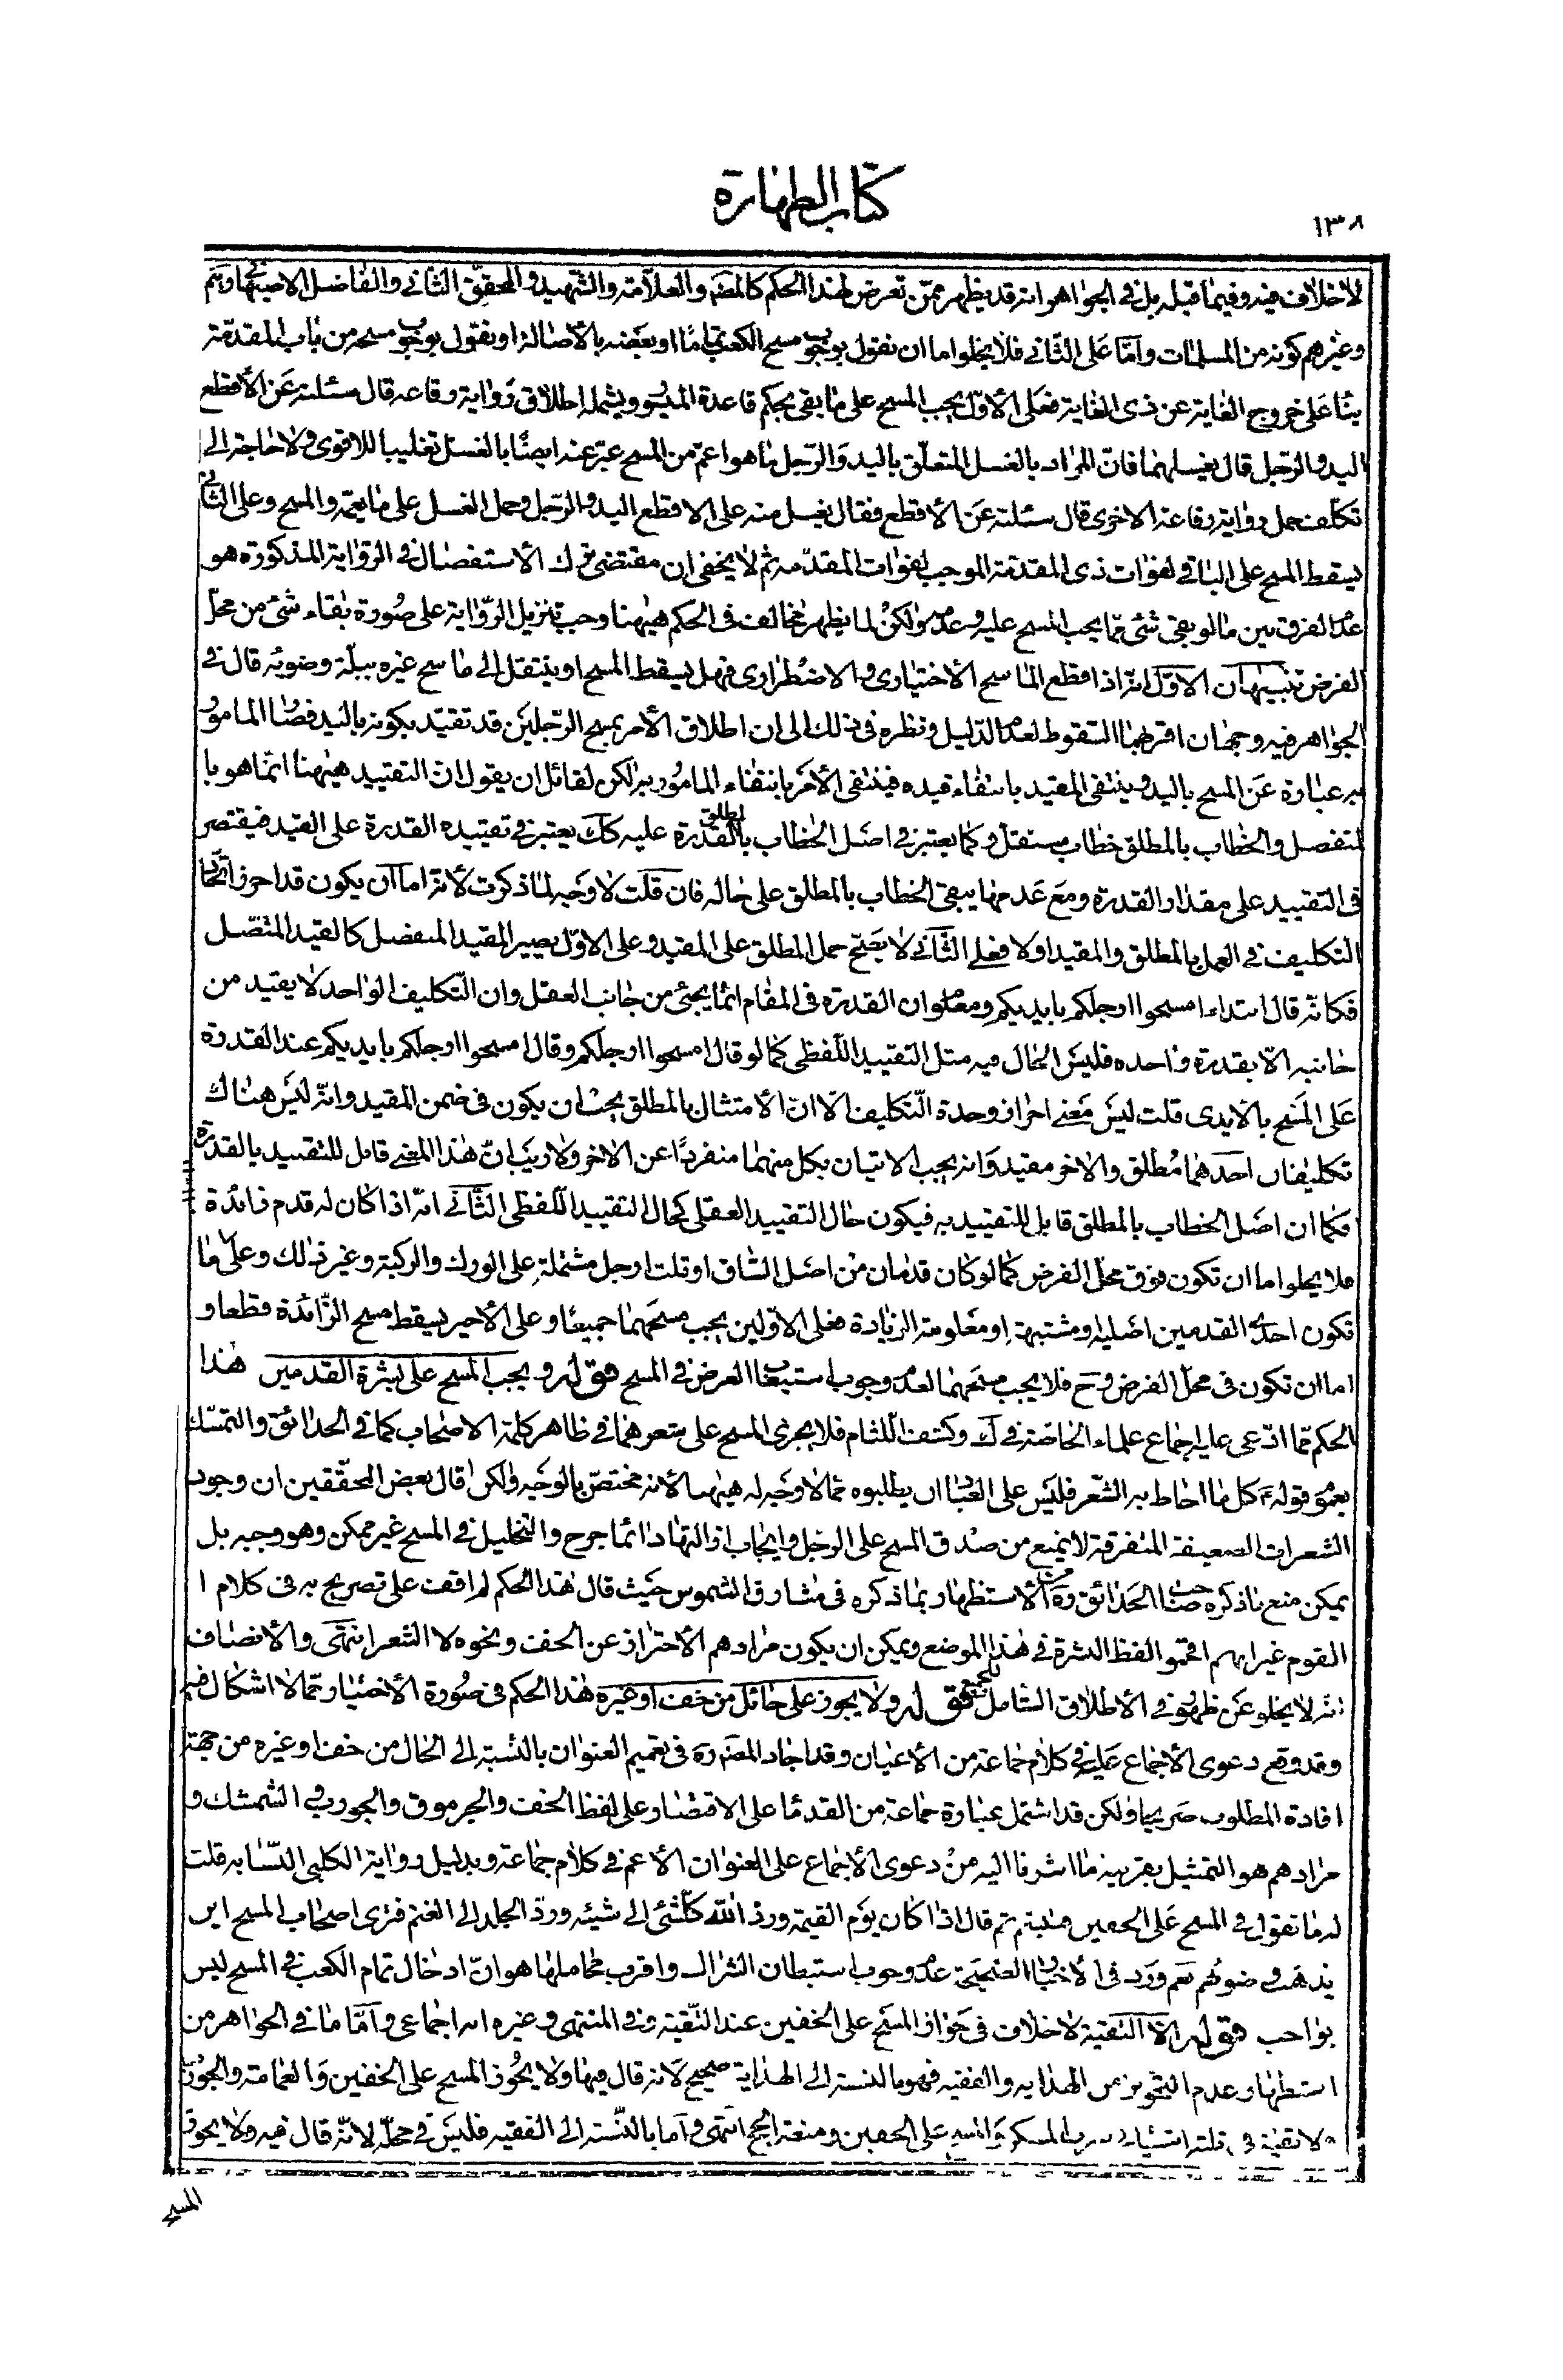 كتاب الطهارة
١٣٨
لا خلاف فيه وفيما قبله بل في الجواهر انه قد يظهر ممن تعرض لهذا الحكم كالمصنف والعلامة والشهيد والمحقق الثاني والفاضل الاصبهاني
وغيرهم كونه من المسلمات واما على الثاني فلا يخلوا ما ان نقول بوجوب مسح الكعب تماما او بعضه بالاصالة او نقول بوجوب مسحه من باب المقدمة
بناء على خروج الغاية عن ذي الغاية فعلى الأول يجب المسح على ما بقى بحكم قاعدة الميسور ويشمله اطلاق رواية رفاعه قال سئلته عن الأقطع
اليد والرجل قال يغسلهما فان المراد بالغسل المتعلق باليد والرجل ما هو اعم من المسح عبر عنه ايضا بالغسل تغليبا للاقوى ولا حاجة الى
تكلف حمل رواية رفاعة الاخرى قال سئلته عن الأقطع فقال يغسل منه على الاقطع اليد والرجل وحمل الغسل على ما يعمه والمسح وعلى الثاني
يسقط المسح على الباقي لفوات ذي المقدمة الموجب لفوات المقدمه ثم لا يخفى ان مقتضى ترك الأستفصال في الرواية المذكورة هو
عدم الفرق بين ما لو بقى شئ مما يجب المسح عليه وعدمه ولكن لما يظهر مخالف في الحكم هيهنا وجب تنزيل الرواية على صورة بقاء شئ من محل
الفرض تنبيهان الاول انه اذا قطع الماسح الأختياري والاضطراري فهل يسقط المسح او ينتقل الى ماسح غيره ببلة وضوئه قال في
الجواهر فيه وجهان اقربهما السقوط لعدم الدليل ونظره في ذلك الى ان اطلاق الأمر بمسح الرجلين قد تقيد بكونه باليد فصار المامور
به عبارة عن المسح باليد وينتفى المقيد بانتفاء قيده فينتفى الأمر بانتفاء المامور به لكن لقائل ان يقول ان التقييد هيهنا انما هو با
لمنفصل والخطاب بالمطلق خطاب مستقل وكما يعتبر في اصل الخطاب بالمطلق القدرة عليه كك يعتبر في تقييده القدرة على القيد فيقتصر
في التقييد على مقدار القدرة ومع عدمها يبقى الخطاب بالمطلق على حاله فان قلت لا وجه لما ذكرت لأنه اما ان يكون قد احرز اتحاد
التكليف في العمل بالمطلق والمقيد او لا فعلى الثاني لا يصح حمل المطلق على المقيد وعلى الاول يصير المقيد المنفصل كالقيد المتصل
فكانه قال ابتداء امسحوا ارجلكم بايديكم ومعلوم ان القدرة في المقام انما يجئ من جانب العقل وان التكليف الواحد لا يقيد من
جانبه الا بقدرة واحده فليس الحال فيه مثل التقييد اللفظي كما لو قال امسحوا ارجلكم وقال امسحوا ارجلكم بايديكم عند القدرة
على المسح بالايدى قلت ليس معنى احراز وحدة التكليف الا ان الأمتثال بالمطلق يجب ان يكون في ضمن المقيد وانه ليس هناك
تكليفان احدهما مطلق والاخر مقيد وانه يجب الاتيان بكل منهما منفردا عن الاخر ولا ريب ان هذا المعنى قابل للتقييد بالقدرة
فكما ان اصل الخطاب بالمطلق قابل للتقييد به فيكون حال التقييد العقلي كحال التقييد اللفظي الثاني انه اذا كان له قدم زائدة
فلا يخلوا اما ان تكون فوق محل الفرض كما لو كان قدمان من اصل الساق او قلت ارجل مشتملة على الورك والركبة وغير ذلك وعليهما
تكون احدى القدمين اصلية او مشتبهة او معلومة الزيادة فعلى الاولين يجب مسحهما جميعا وعلى الأخير يسقط مسح الزائدة قطعا و
اما ان تكون في محل الفرض وح فلا يجب مسحهما لعدم وجوب استيعاب العرض في المسح قوله ويجب المسح على بشرة القدمين هذا
الحكم مما ادعى عليه اجماع علماء الخاصة في ك وكشف اللثام فلا يجزى المسح على شعرهما في ظاهر كلمة الاصحاب كما في الحدائق والتمسك
بعموم قوله ع كل ما احاط به الشعر فليس على العباد ان يطلبوه مما لا وجه له هيهنا لأنه مختص بالوجه ولكن قال بعض المحققين ان وجود
الشعرات الضعيفة المتفرقة لا يمنع من صدق المسح على الرجل وايجاب ازالتها دائما حرج والتخليل في المسح غير ممكن وهو وجيه بل
يمكن منع ما ذكره صاحب الحدائق ره من الأستظهار بما ذكره في مشارق الشموس حيث قال هذا الحكم لم اقف على تصريح به في كلام ا
القوم غير انهم اقحموا لفظ البشرة في هذا الموضع ويمكن ان يكون مرادهم الأحتراز عن الخف ونحوه لا الشعر انتهى والأنصاف
انه لا يخلو عن ظهور في الأطلاق الشامل للخف قوله ولا يجوز على حائل من خف او غيره هذا الحكم في صورة الأختيار مما لا اشكال فيه
وقد وقع دعوى الأجماع عليه في كلام جماعة من الأعيان وقد اجاد المصنف ره في تعميم العنوان بالنسبة الى الحال من خف او غيره من جهة
افادة المطلوب صريحا ولكن قد اشتمل عبارة جماعة من القدماء على الاقتصار على لفظ الخف والجرموق والجورب والشمشك و
مرادهم هو التمثيل بقرينه ما اشرنا اليه من دعوى الأجماع على العنوان الأعم في كلام جماعة وبدليل رواية الكلبي النسابه قلت
له ما تقول في المسح على الخفين فتبسم ثم قال اذا كان يوم القيمة ورد الله كل شئ الى شيئه ورد الجلد الى الغنم فترى اصحاب المسح اين
يذهب وضوئهم نعم ورد في الأخبار الصحيحة عدم وجوب استبطان الشراك واقرب محاملها هو ان ادخال تمام الكعب في المسح ليس
بواجب قوله الا لتقية لا خلاف في جواز المسح على الخفين عند التقية وفي المنتهى وغيره انه اجماعي واما ما في الجواهر من
استظهار عدم التجويز من الهدايه والفقيه فهو بالنسبة الى الهداية صحيح لأنه قال فيها ولا يجوز المسح على الخفين والعمامة والجورب
ولا تقية في ثلثة اشياء شرب المسكر والمسح على الخفين ومتعة الحج انتهى واما بالنسبة الى الفقيه فليس في محله لانه قال فيه ولا يجوز
المسح